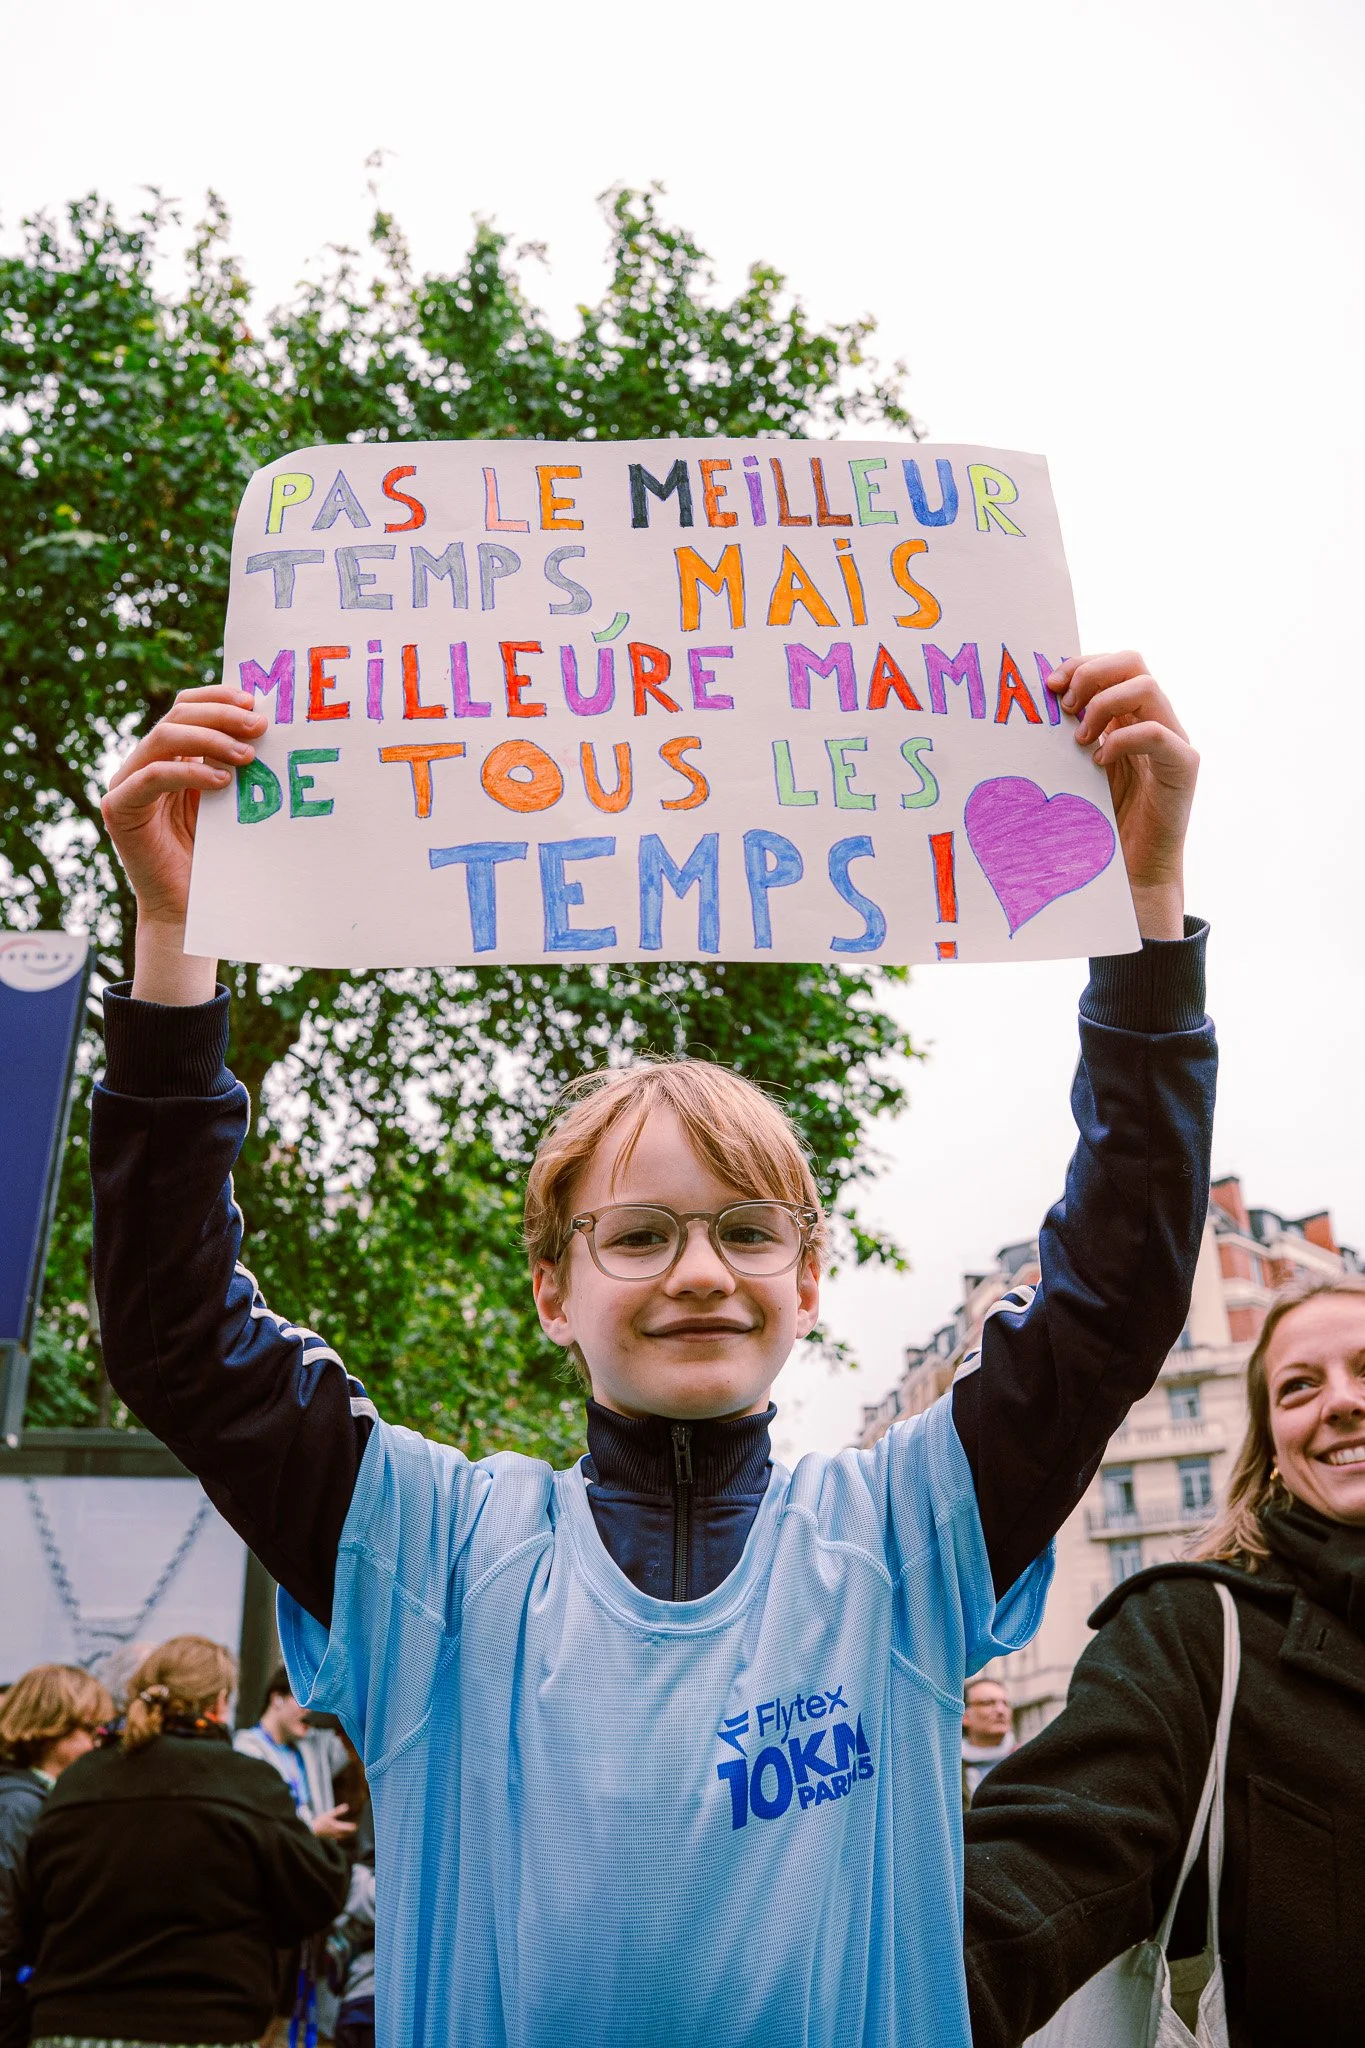 PAS LE MEILLEUR
TEMPS, MAIS
MEILLEURE MAMAN
DE TOUS LES
TEMPS !
Flytex
10KM
PARIS 15